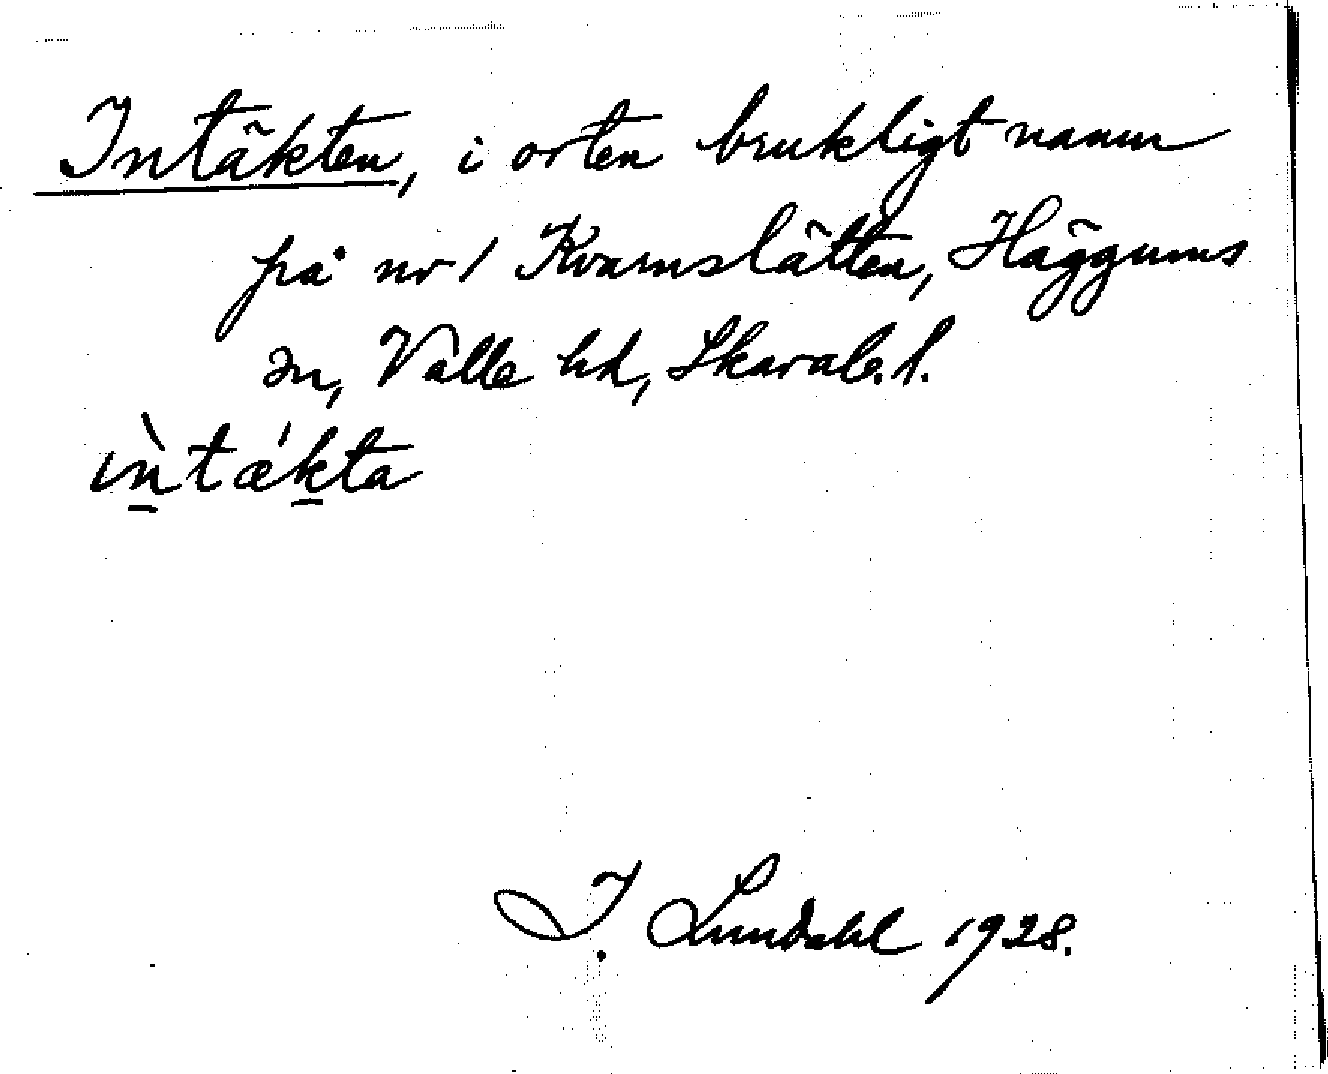 Intäkten, i orten brukligt namn
på nr 1 Kvarnslätten, Häggums
sn, Valle hd, Skarab. l.
ìn̠tǽk̠ta
I. Lundahl 1928.